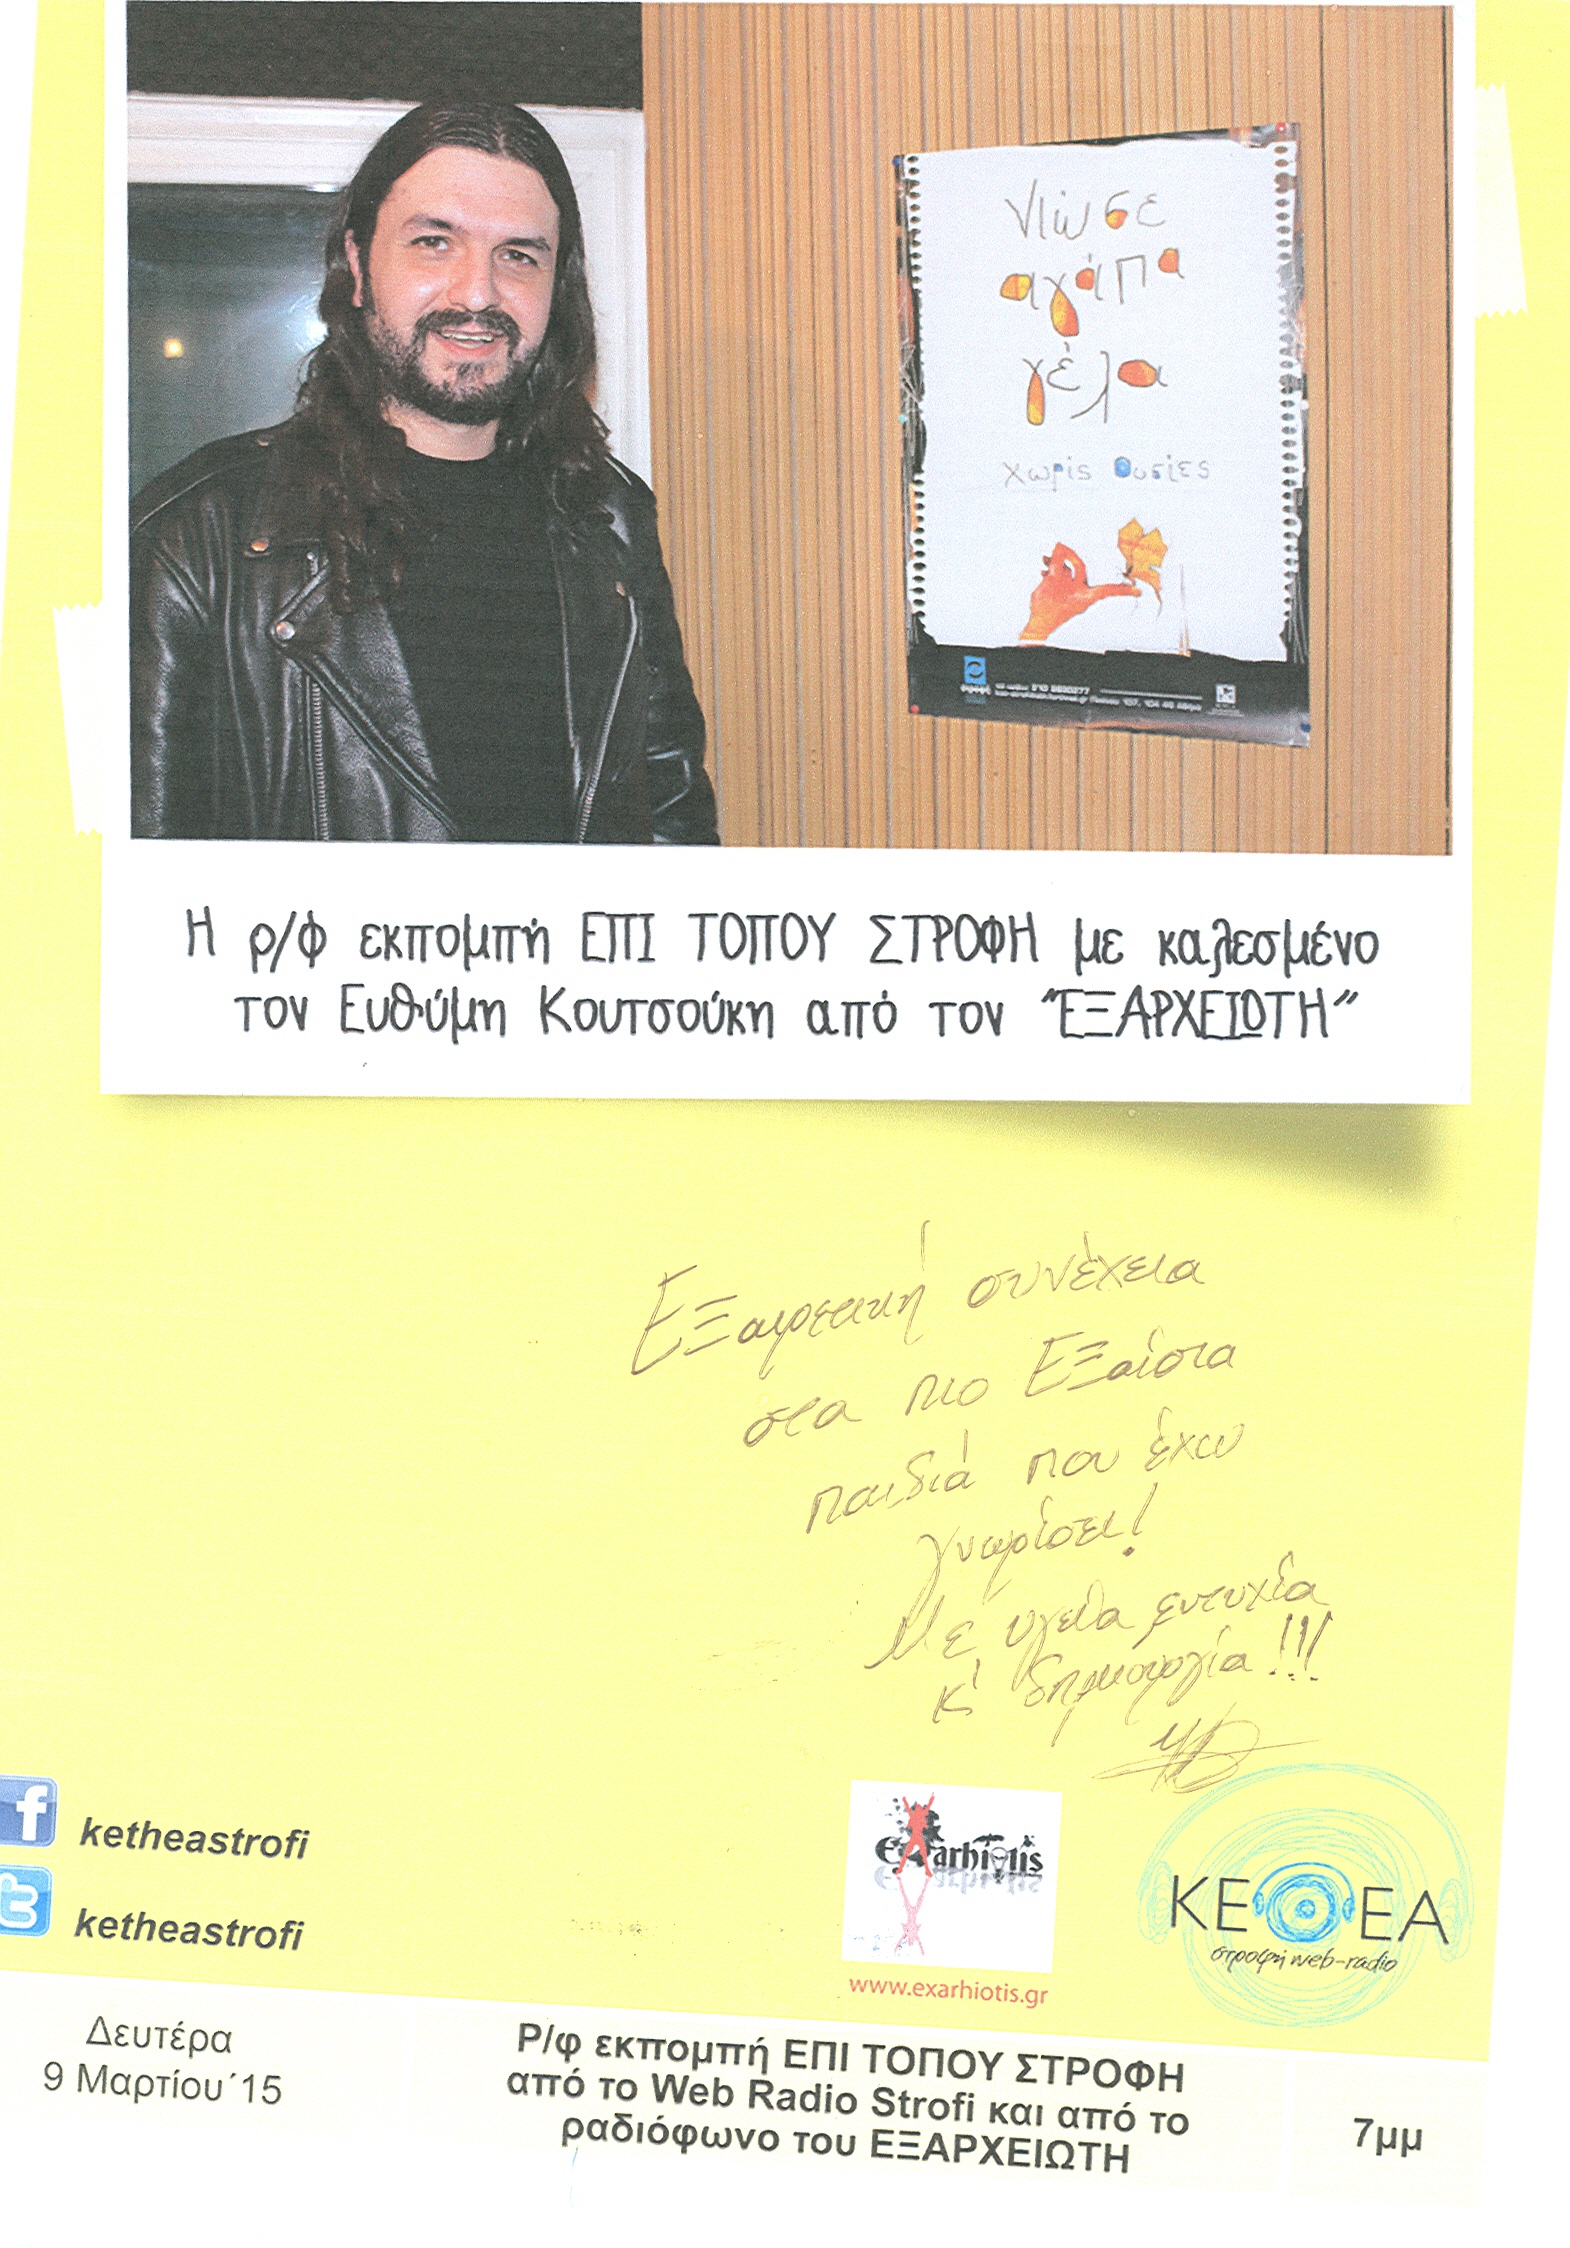 νιώσε
αγάπα
γέλα
χωρίς ουσίες
Η ρ/φ εκπομπή ΕΠΙ ΤΟΠΟΥ ΣΤΡΟΦΗ με καλεσμένο
τον Ευθύμη Κουτσούκη από τον “ΕΞΑΡΧΕΙΩΤΗ”
ΕΞαιρετική συνέχεια
στα πιο ΕΞαίσια
παιδιά που έχω
γνωρίσει!
Με υγεία ευτυχία
κ' δημιουργία!!!
f ketheastrofi
t ketheastrofi
Exarhiotis
www.exarhiotis.gr
ΚΕΘΕΑ
στροφή web-radio
Δευτέρα
9 Μαρτίου΄15
Ρ/φ εκπομπή ΕΠΙ ΤΟΠΟΥ ΣΤΡΟΦΗ
από το Web Radio Strofi και από το
ραδιόφωνο του ΕΞΑΡΧΕΙΩΤΗ
7μμ